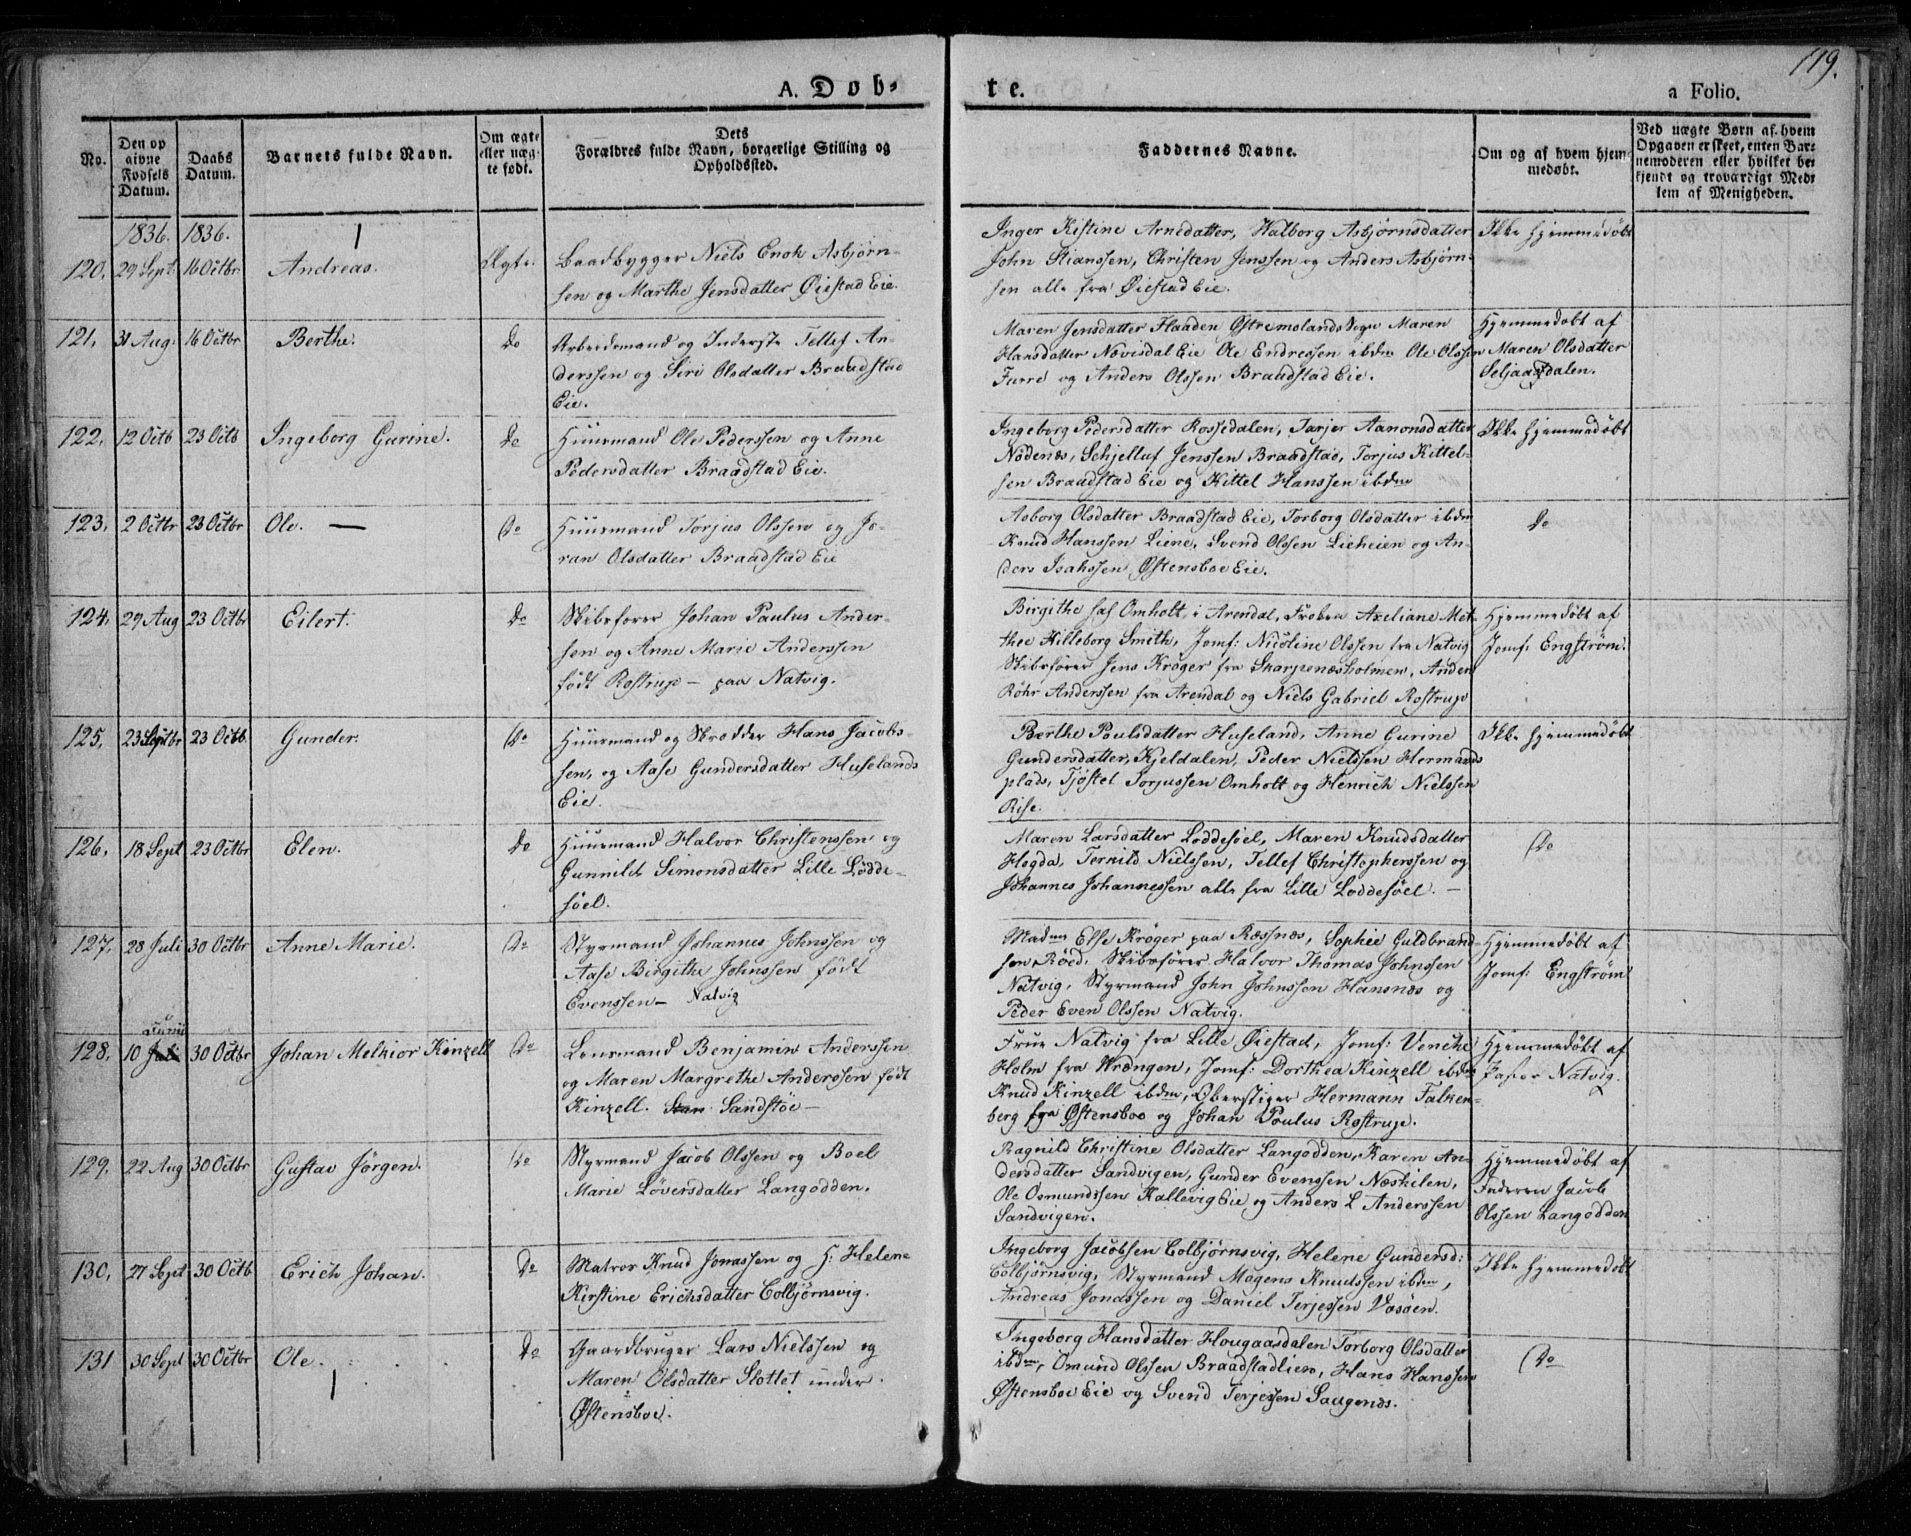 119.
A. Døb-
te.
a Folio.
No.
Den op
givne
Fødsels
Datum.
Daabs
Datum.
Barnets fulde Navn.
Om ægte
eller uæg-
te født.
Dets
Forældres fulde Navn, borgerlige Stilling og
Opholdssted.
Faddernes Navne.
Om og af hvem hjem-
medøbt.
Ved uægte Børn af hvem
Opgaven er skeet, enten Bar-
nemoderen eller hvilket be-
kjendt og troværdigt Med-
lem af Menigheden.
1836. 1836.
120. 29 Sept. 16 Octbr Andreas. Ægte.
Baadbygger Niels Enok Asbjørn-
sen og Marthe Jensdatter Øiestad Eie.
Inger Kistine Arnedatter, Halborg Asbjørnsdatter
John Stianssen, Christen Jenssen og Anders Asbjørn-
sen alle fra Øiestad Eie.
Ikke Hjemmedøbt
121. 31 Aug. 16 Octbr Berthe. Do
Arbeidsmand og Inderste Tellef An-
derssen og Siri Olsdatter Braadstad
Eie.
Maren Jensdatter Flaaden Østremolands Sogn Maren
Hansdatter Nævisdal Eie Ole Endressen ibdm Ole Olssen
Furre og Anders Olssen Braadstad Eie.
Hjemmedøbt af
Maren Olsdatter
Seljaasdalen.
122. 12 Octb 23 Octb Ingeborg Gurine. Do
Huusmand Ole Pederssen og Anne
Pedersdatter Braadstad Eie.
Ingeborg Pedersdatter Rossedalen, Tarjer Aanonsdatter
Nødenæs, Schjelluf Jenssen Braadstad, Torjus Kittel-
sen Braadstad Eie og Kittel Hanssen ibdm
Ikke Hjemmedøbt
123. 2 Octbr 23 Octbr Ole. — Do
Huusmand Torjus Olssen og Jo-
ran Olsdatter Braadstad Eie
Asborg Olsdatter Braadstad Eie, Torborg Olsdatter ibdm
Knud Hanssen Liene, Svend Olssen Lieheien og An-
ders Isakssen Østensboe Eie.
Do
124. 29 Aug 23 Octbr Eilert. Do
Skibsfører Johan Paulus Ander-
sen og Anne Marie Anderssen
født Rostrup — paa Natvig.
Birgithe sal Omholt, i Arendal, Frøken Axeliane Met-
thee Hilleborg Smith, Jomf: Nicoline Olssen fra Natvig
Skibsfører Jens Krøger fra Skarpenæsholmen, Anders
Röhr Anderssen fra Arendal og Niels Gabriel Rostrup
Hjemmedøbt af
Jomf: Engstrøm.
125. 23 Septbr 23 Octb. Gunder. Do
Huusmand og Skrædder Hans Jacobs-
sen, og Aase Gundersdatter Huselands
Eie.
Berthe Pulsdatter Huseland, Anne Gurine
Gundersdatter, Kjeldalen, Peder Nielssen Hermands
plads, Tjøstel Torjussen Omholt og Henrich Nielssen
Rise.
Ikke Hjemmedøbt
126. 18 Sept 23 Octbr Elen. Do
Huusmand Halvor Christenssen og
Gunnild Simonsdatter Lille Lødde-
søel.
Maren Larsdatter Loddesøel, Maren Knudsdatter
Hogda, Ternild Nielssen, Tellef Christopherssen og
Johannes Johannessen alle fra Lille Loddesøel. —
Do
127. 28 Juli 30 Octbr Anne Marie. Do
Styrmand Johannes Johnssen og
Aase Birgithe Johnssen født
Evenssen — Natvig
Madme Else Krøger paa Ræsnæs, Sophie Guldbrand-
sen Røed. Skibsfører Halvor Thomas Johnssen
Natvig, Styrmand John Johnssen Hansnæs og
Peder Even Olssen Natvig.
Hjemmedøbt af
Jomf: Engstrøm
Junii
128. 10 Juli 30 Octbr Johan Melkior Kinzell Do
Lensmand Benjamin Anderssen
og Maren Margrethe Anderssen født
Kinzell. San Sandstøe —
Frue Natvig fra Lille Øiestad, Jomf: Venche
Holm fra Wrængen, Jomf: Dorthea Kinzell ibdm
Knud Kinzell ibdm, Oberstiger Hermann Falken-
berg fra Østensboe og Johan Paulus Rostrup.
Hjemmedøbt af
Jasper Natvig.
129. 22 Aug 30 Octbr Gustav Jörgen. Do
Styrmand Jacob Olssen og Boel
Marie Løversdatter Langodden.
Ragnild Christine Olsdatter Langodden, Karen An-
dersdatter Sandvigen, Gunder Evenssen Næskilen,
Ole Osmundssen Kallevig Eie og Anders L Anderssen
Sandvigen.
Hjemmedøbt af
Faderen Jacob
Olssen Langodden
130. 27 Sept 30 Octb Erich Johan. Do
Matros Knud Jonassen og H: Helene
Kirstine Erichsdatter Colbjørnsvig.
Ingeborg Jacobsen Colbjørnsvig, Helene Gundersd:
Colbjørnsvig, Styrmand Mogens Knudssen ibdm,
Andreas Jonassen og Daniel Terjessen Vosøen.
Ikke Hjemmedøbt
131 30 Sept 30 Octbr Ole. Do
Gaardbruger Lars Nielssen og
Maren Olsdatter Slottet under
Østensboe.
Ingeborg Hansdatter Hougaardalen Torborg Olsdatter
ibdm, Omund Olssen Braadstadlien, Hans Hanssen
Østensboe Eie og Svend Terjessen Saugenæs.
Do